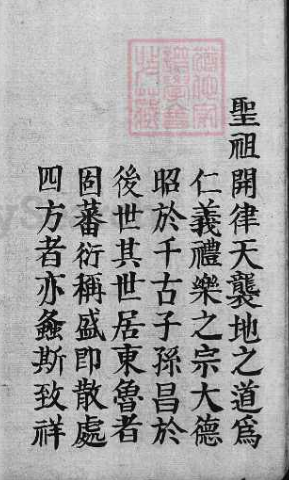 聖祖開律天襲地之道爲
仁義禮樂之宗大德
昭於千古子孫昌於
後世其世居東魯者
固蕃衍稱盛即散處
四方者亦螽斯致祥